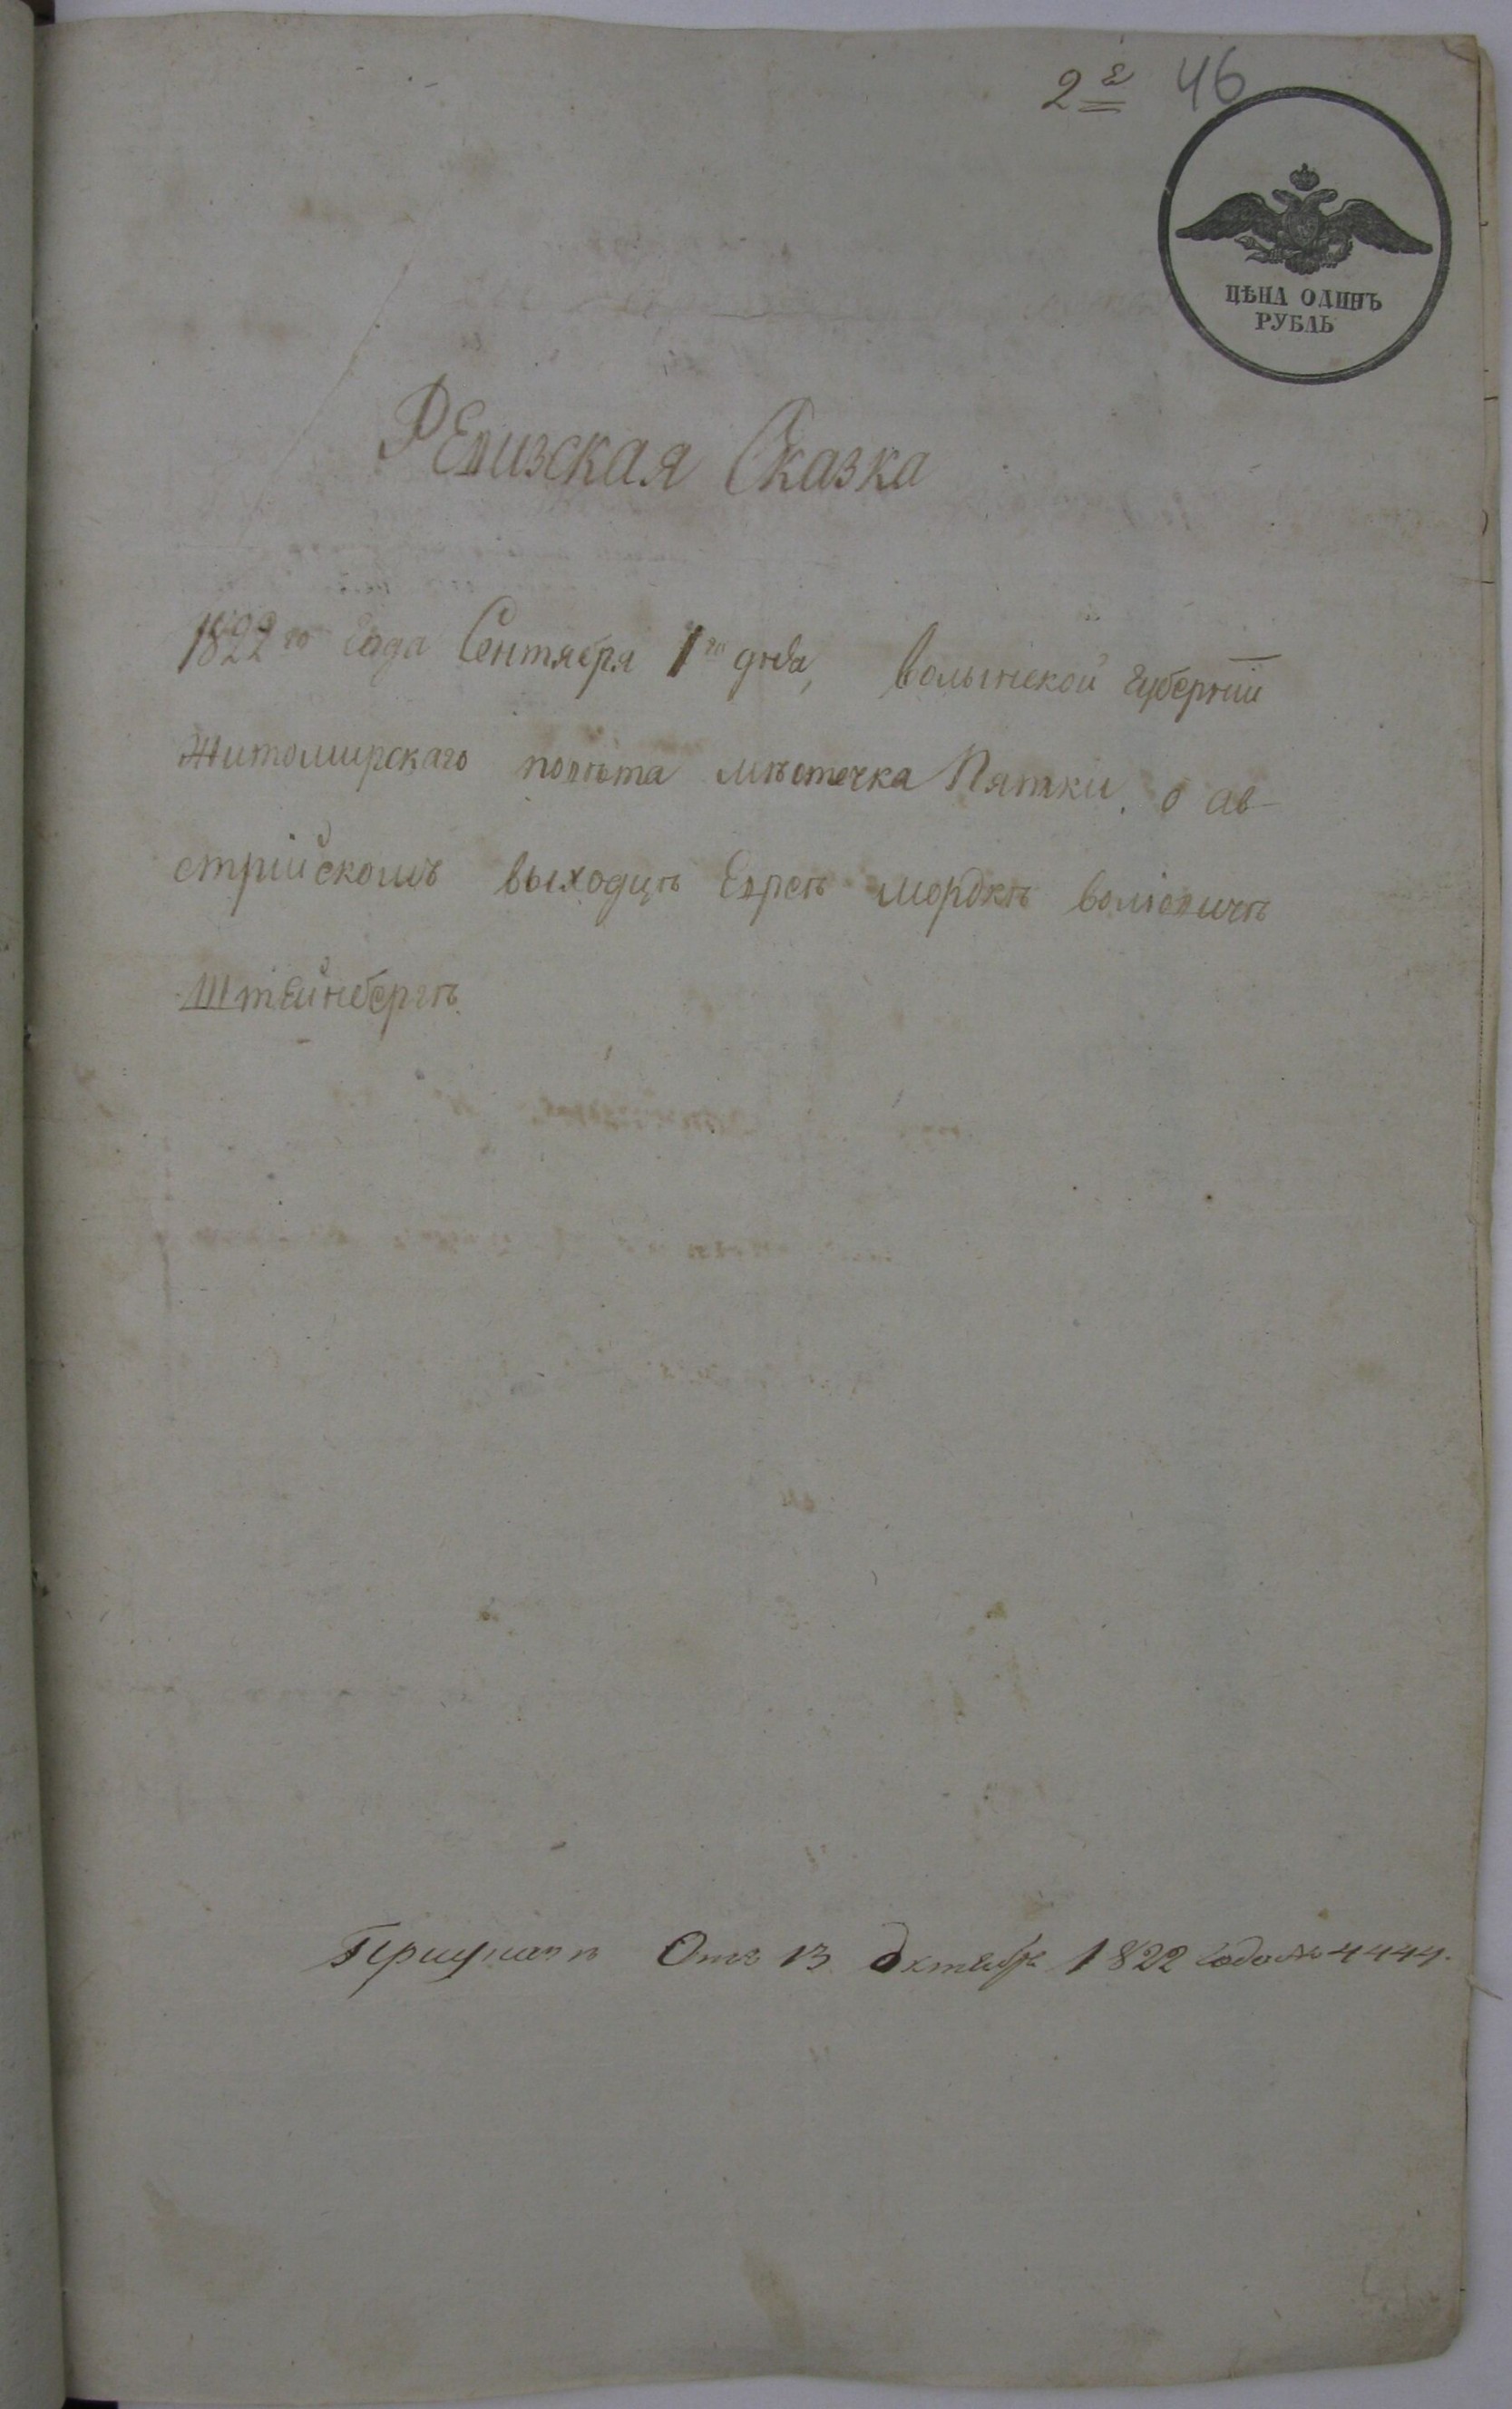 2е 46
ЦѢНА ОДИНЪ
РУБЛЬ
РЕвизская Сказка
1822го Года Сентября 1го дня, Волынской губернїи
Житомирскаго повѣта мѣстечка Пятки. о ав-
стрійскомъ выходцѣ Евреѣ мордкѣ
Штейнбергѣ.
Отъ 13 Октября 1822 года № 4444.